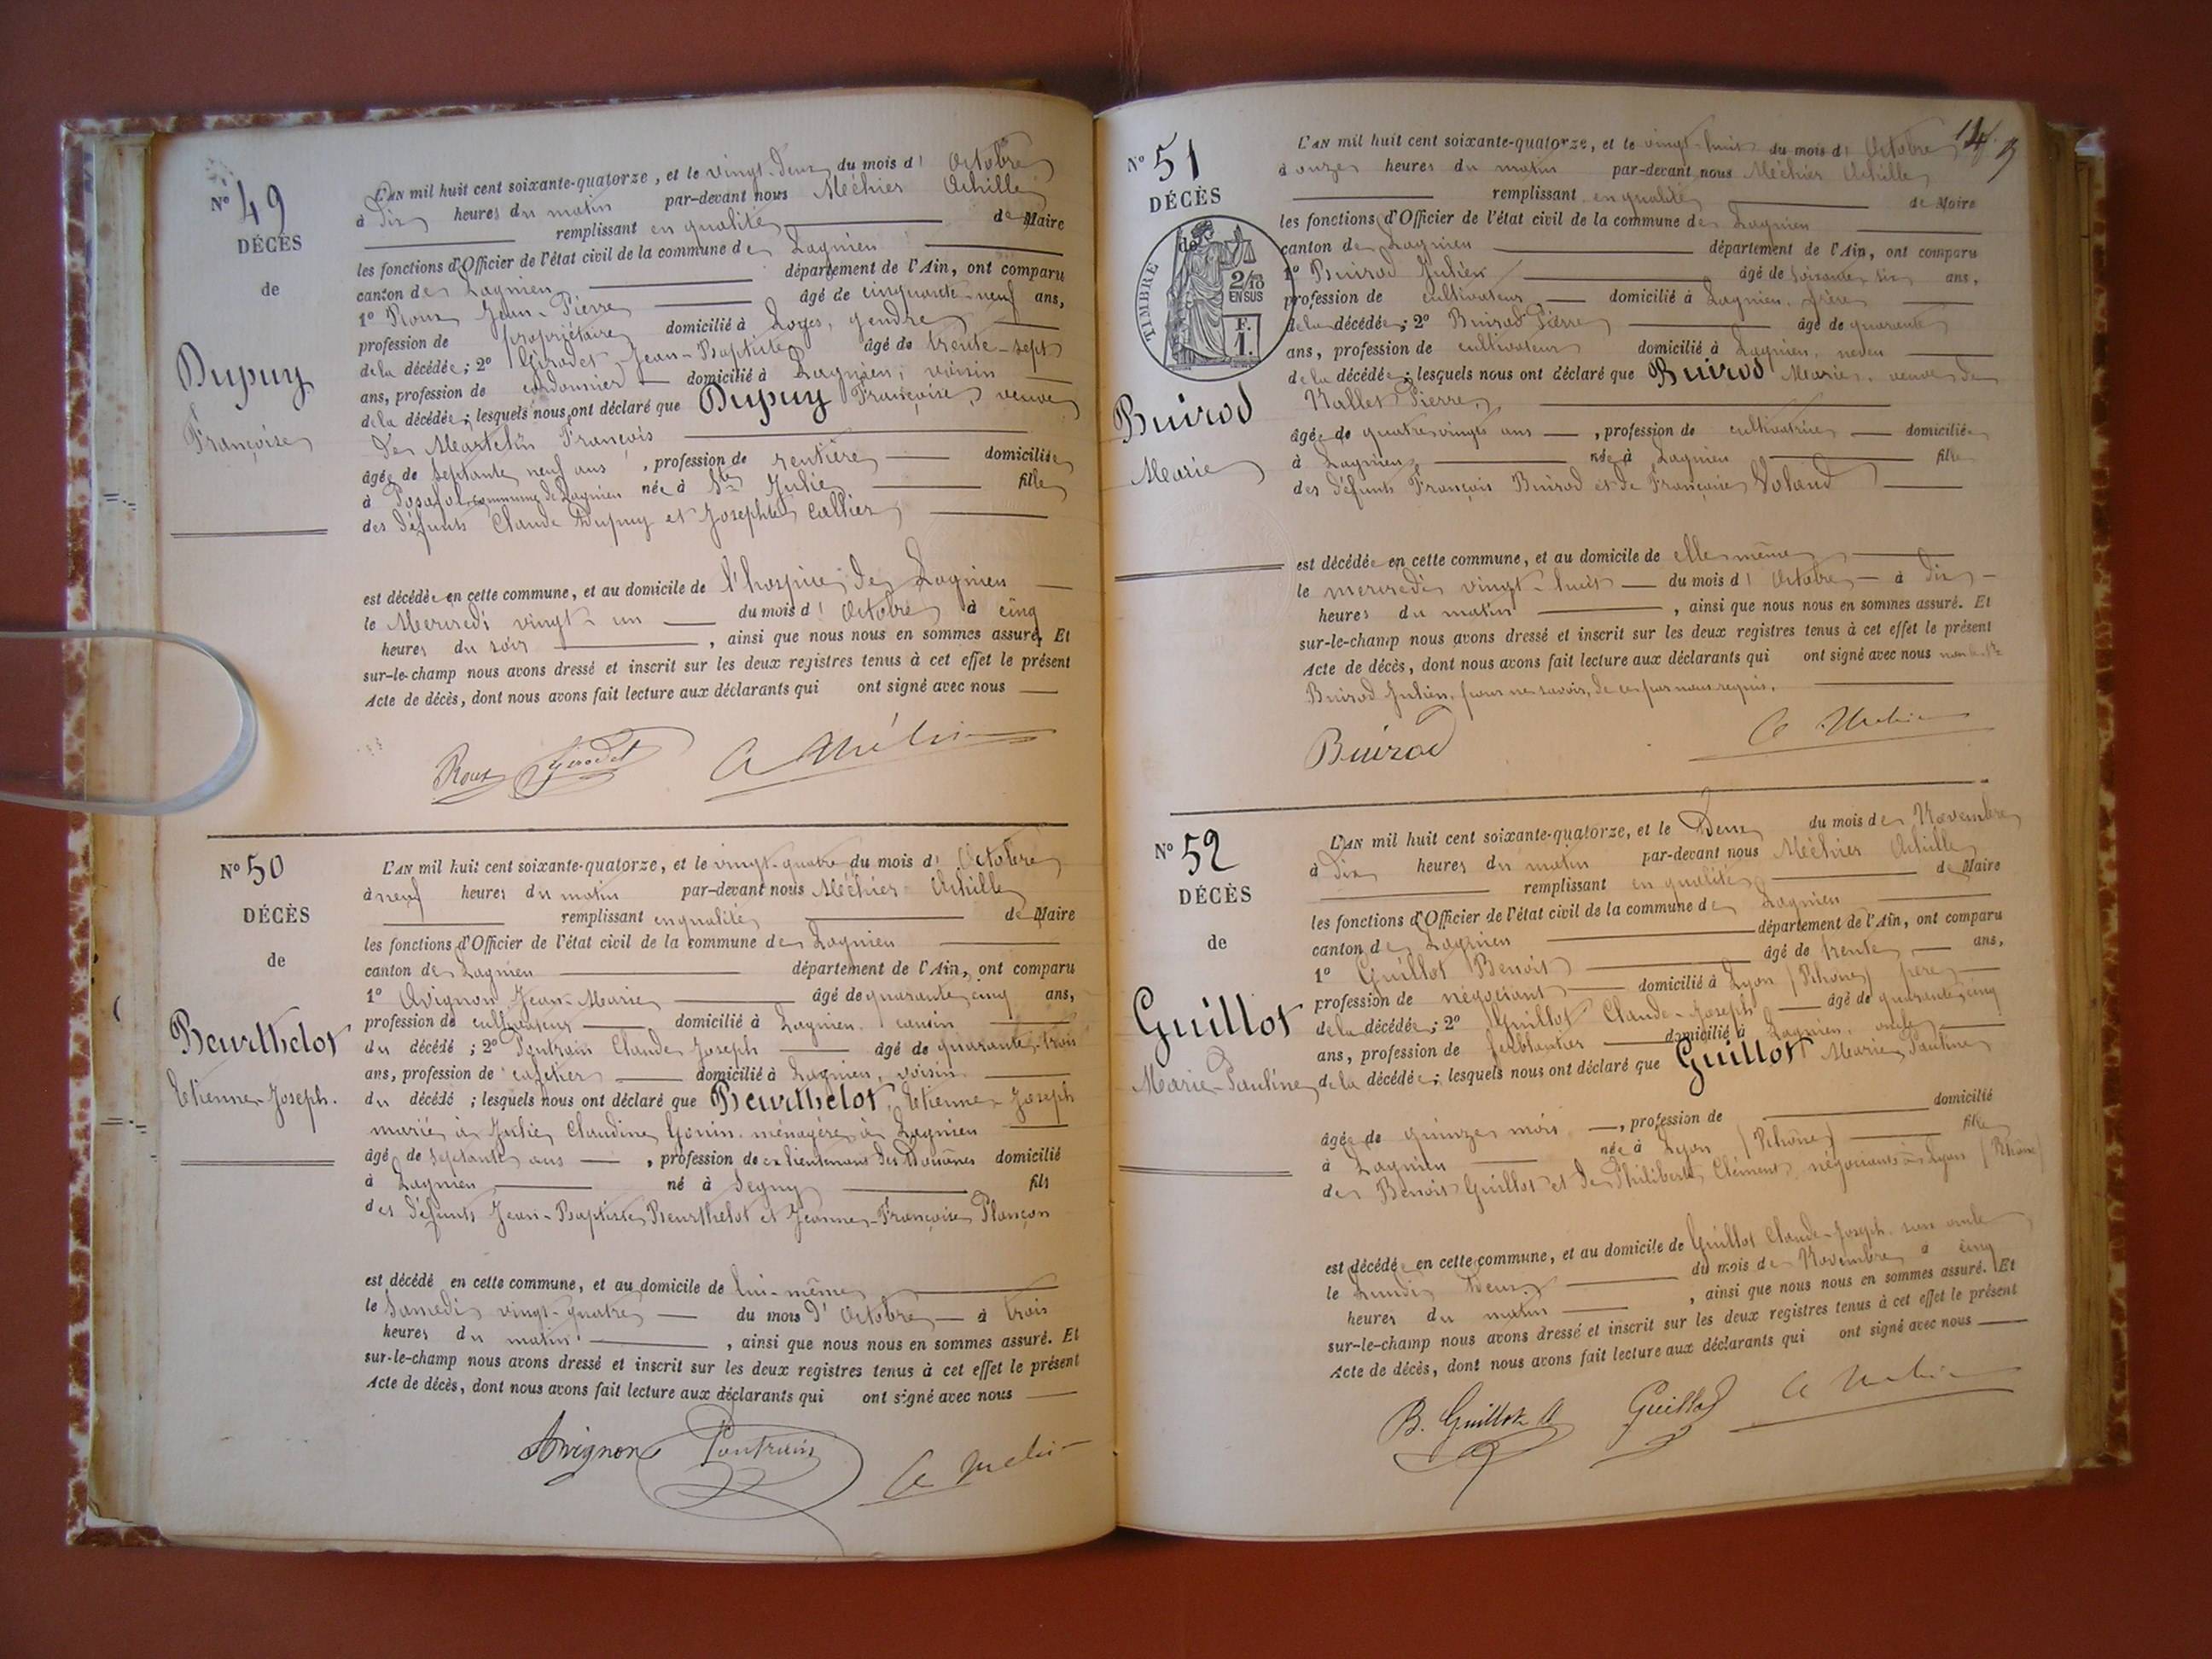 N° 49
DÉCÈS
de
Dupuy
Françoise
L'AN mil huit cent soixante-quatorze, et le vingt-deux du mois d' Octobre
à dix heures du matin par-devant nous Méchier Achille
remplissant en qualité de Maire
les fonctions d'Officier de l'état civil de la commune de Lagnieu
canton de Lagnieu département de l'Ain, ont comparu
1° Roux Jean-Pierre âgé de cinquante-neuf ans,
profession de propriétaire domicilié à Loyes, gendre
de la décédée; 2° Girodet Jean-Baptiste âgé de trente-sept
ans, profession de cordonnier domicilié à Lagnieu, voisin
de la décédée; lesquels nous ont déclaré que Dupuy Françoise, veuve
de Martelin François
âgée de septante neuf ans, profession de rentière domiciliée
à Posafol commune de Lagnieu née à Ste Julie fille
des défunts Claude Dupuy et Josephte Callier
est décédée en cette commune, et au domicile de l'hospice de Lagnieu
le Mercredi vingt-un du mois d' Octobre à cinq
heures du soir, ainsi que nous nous en sommes assuré. Et
sur-le-champ nous avons dressé et inscrit sur les deux registres tenus à cet effet le présent
Acte de décès, dont nous avons fait lecture aux déclarants qui ont signé avec nous
Roux Girodet A Méchier
N° 50
DÉCÈS
de
Beurthelot
Etienne-Joseph.
L'AN mil huit cent soixante-quatorze, et le vingt-quatre du mois d' Octobre
à neuf heures du matin par-devant nous Méchier Achille
remplissant en qualité de Maire
les fonctions d'Officier de l'état civil de la commune de Lagnieu
canton de Lagnieu département de l'Ain, ont comparu
1° Avignon Jean-Marie âgé de quarante cinq ans,
profession de cultivateur domicilié à Lagnieu, cousin
du décédé; 2° Pontrain Claude Joseph âgé de quarante-trois
ans, profession de cafetier domicilié à Lagnieu, voisin
du décédé; lesquels nous ont déclaré que Beurthelot, Etienne-Joseph
marié à Julie Claudine Gonin, ménagère à Lagnieu
âgé de septante ans, profession de ex lieutenant des Douanes domicilié
à Lagnieu né à Segny fils
des défunts Jean-Baptiste Beurthelot et Jeanne-Françoise Plançon
est décédé en cette commune, et au domicile de lui-même
le Samedi vingt-quatre du mois d' Octobre à trois
heures du matin, ainsi que nous nous en sommes assuré. Et
sur-le-champ nous avons dressé et inscrit sur les deux registres tenus à cet effet le présent
Acte de décès, dont nous avons fait lecture aux déclarants qui ont signé avec nous
Avignon Pontrain A Méchier
14
N° 51
DÉCÈS
de
TIMBRE
2/10
EN SUS
F.
1.
Buirod
Marie
L'AN mil huit cent soixante-quatorze, et le vingt-huit du mois d' Octobre
à onze heures du matin par-devant nous Méchier Achille
remplissant en qualité de Maire
les fonctions d'Officier de l'état civil de la commune de Lagnieu
canton de Lagnieu département de l'Ain, ont comparu
1° Buirod Julien âgé de soixante six ans,
profession de cultivateur domicilié à Lagnieu, frère
de la décédée; 2° Buirod Pierre âgé de quarante
ans, profession de cultivateur domicilié à Lagnieu, neveu
de la décédée; lesquels nous ont déclaré que Buirod Marie, veuve de
Vallet Pierre
âgée de quatre vingts ans, profession de cultivatrice domiciliée
à Lagnieu née à Lagnieu fille
des défunts François Buirod et de Françoise Voland
est décédée en cette commune, et au domicile de elle même
le mercredi vingt-huit du mois d' Octobre à dix
heures du matin, ainsi que nous nous en sommes assuré. Et
sur-le-champ nous avons dressé et inscrit sur les deux registres tenus à cet effet le présent
Acte de décès, dont nous avons fait lecture aux déclarants qui ont signé avec nous non le
Buirod Julien, pour ne savoir, de ce par nous requis.
Buirod A Méchier
N° 52
DÉCÈS
de
Guillot
Marie-Pauline
L'AN mil huit cent soixante-quatorze, et le Deux du mois de Novembre
à dix heures du matin par-devant nous Méchier Achille
remplissant en qualité de Maire
les fonctions d'Officier de l'état civil de la commune de Lagnieu
canton de Lagnieu département de l'Ain, ont comparu
1° Guillot Benoit âgé de trente ans,
profession de négociant domicilié à Lyon (Rhône) père
de la décédée; 2° Guillot Claude-Joseph âgé de quarante cinq
ans, profession de ferblantier domicilié à Lagnieu, oncle
de la décédée; lesquels nous ont déclaré que Guillot Marie Pauline
âgée de quinze mois, profession de domicilié
à Lagnieu née à Lyon (Rhône) fille
de Benoit Guillot et de Philiberte Clément, négociants à Lyon (Rhône)
est décédée en cette commune, et au domicile de Guillot Claude-Joseph son oncle
le Lundi Deux du mois de Novembre à cinq
heures du matin, ainsi que nous nous en sommes assuré. Et
sur-le-champ nous avons dressé et inscrit sur les deux registres tenus à cet effet le présent
Acte de décès, dont nous avons fait lecture aux déclarants qui ont signé avec nous
B. Guillot Guillot A Méchier